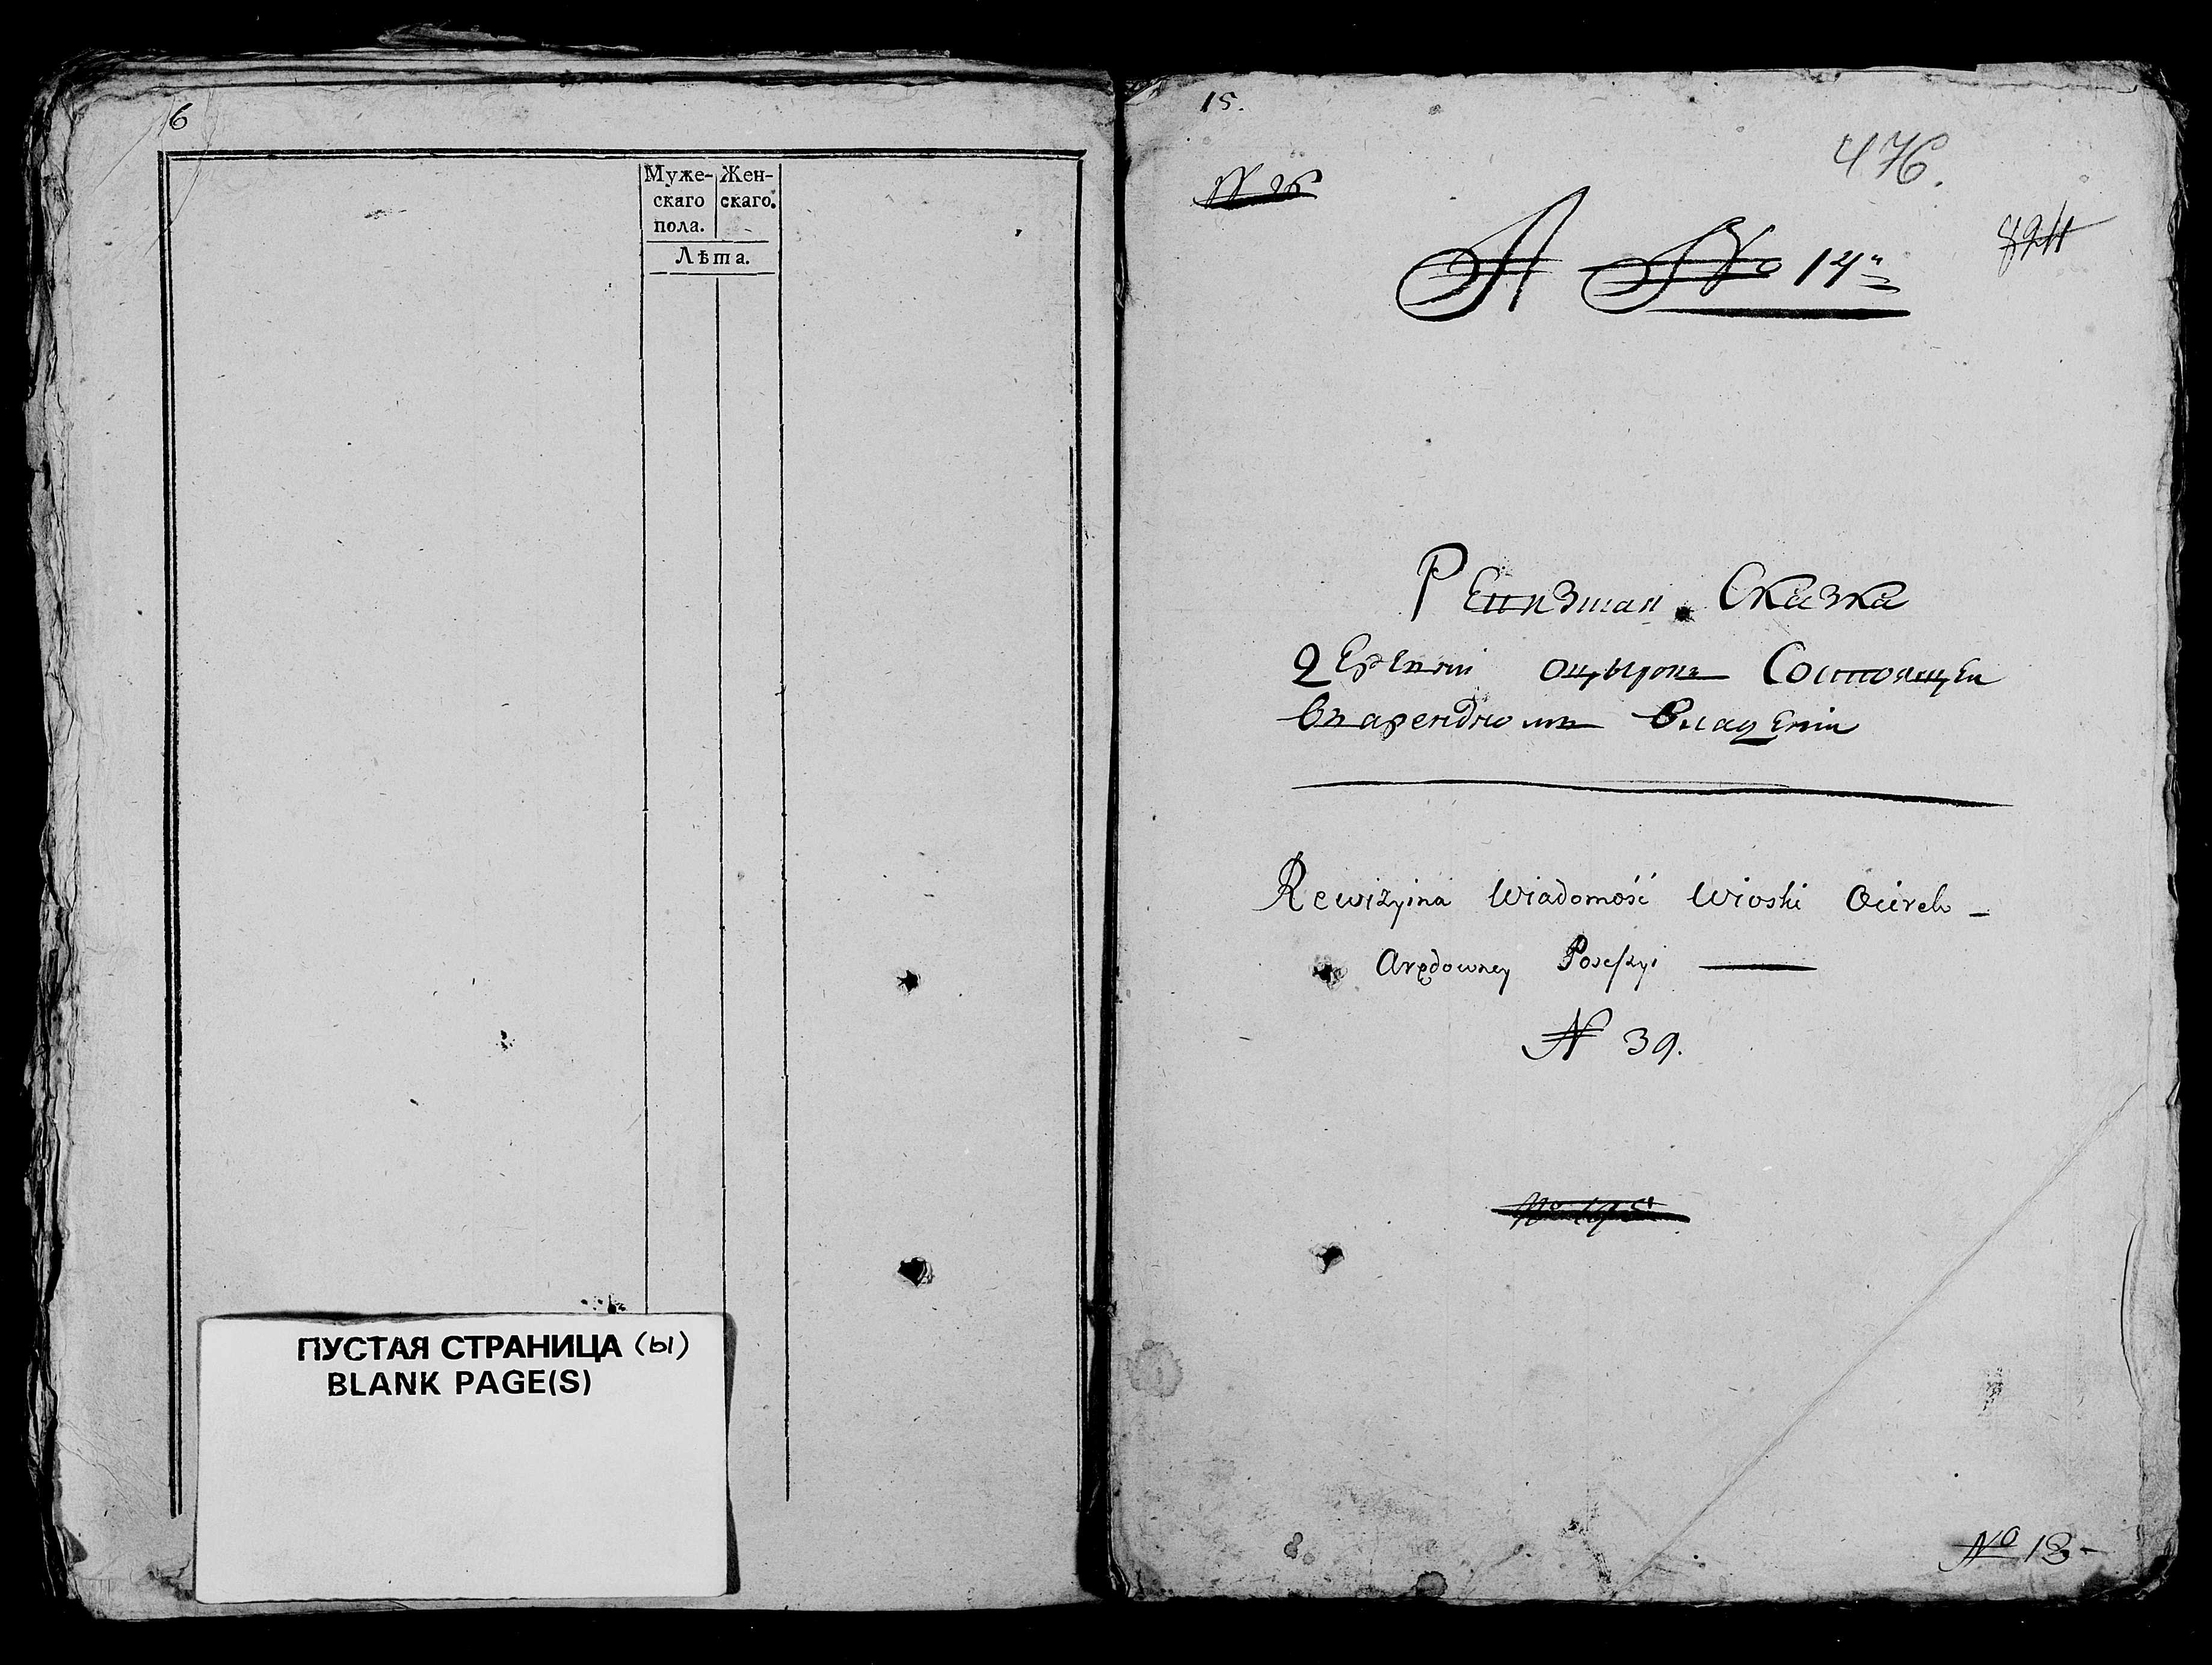 6
Муже-
скаго
пола.
Жен-
скаго.
Лѣта.
ПУСТАЯ СТРАНИЦА (ы)
BLANK PAGE(S)
15.
476.
N 26
824
A No 14
Ревизшая Сказка
Деревни Оцырокъ Состоящеи
въ арендномъ владении
Rewizyina Wiadomość Wioski Ocirek -
Arędowney Possessyi
N 39.
No 13 -